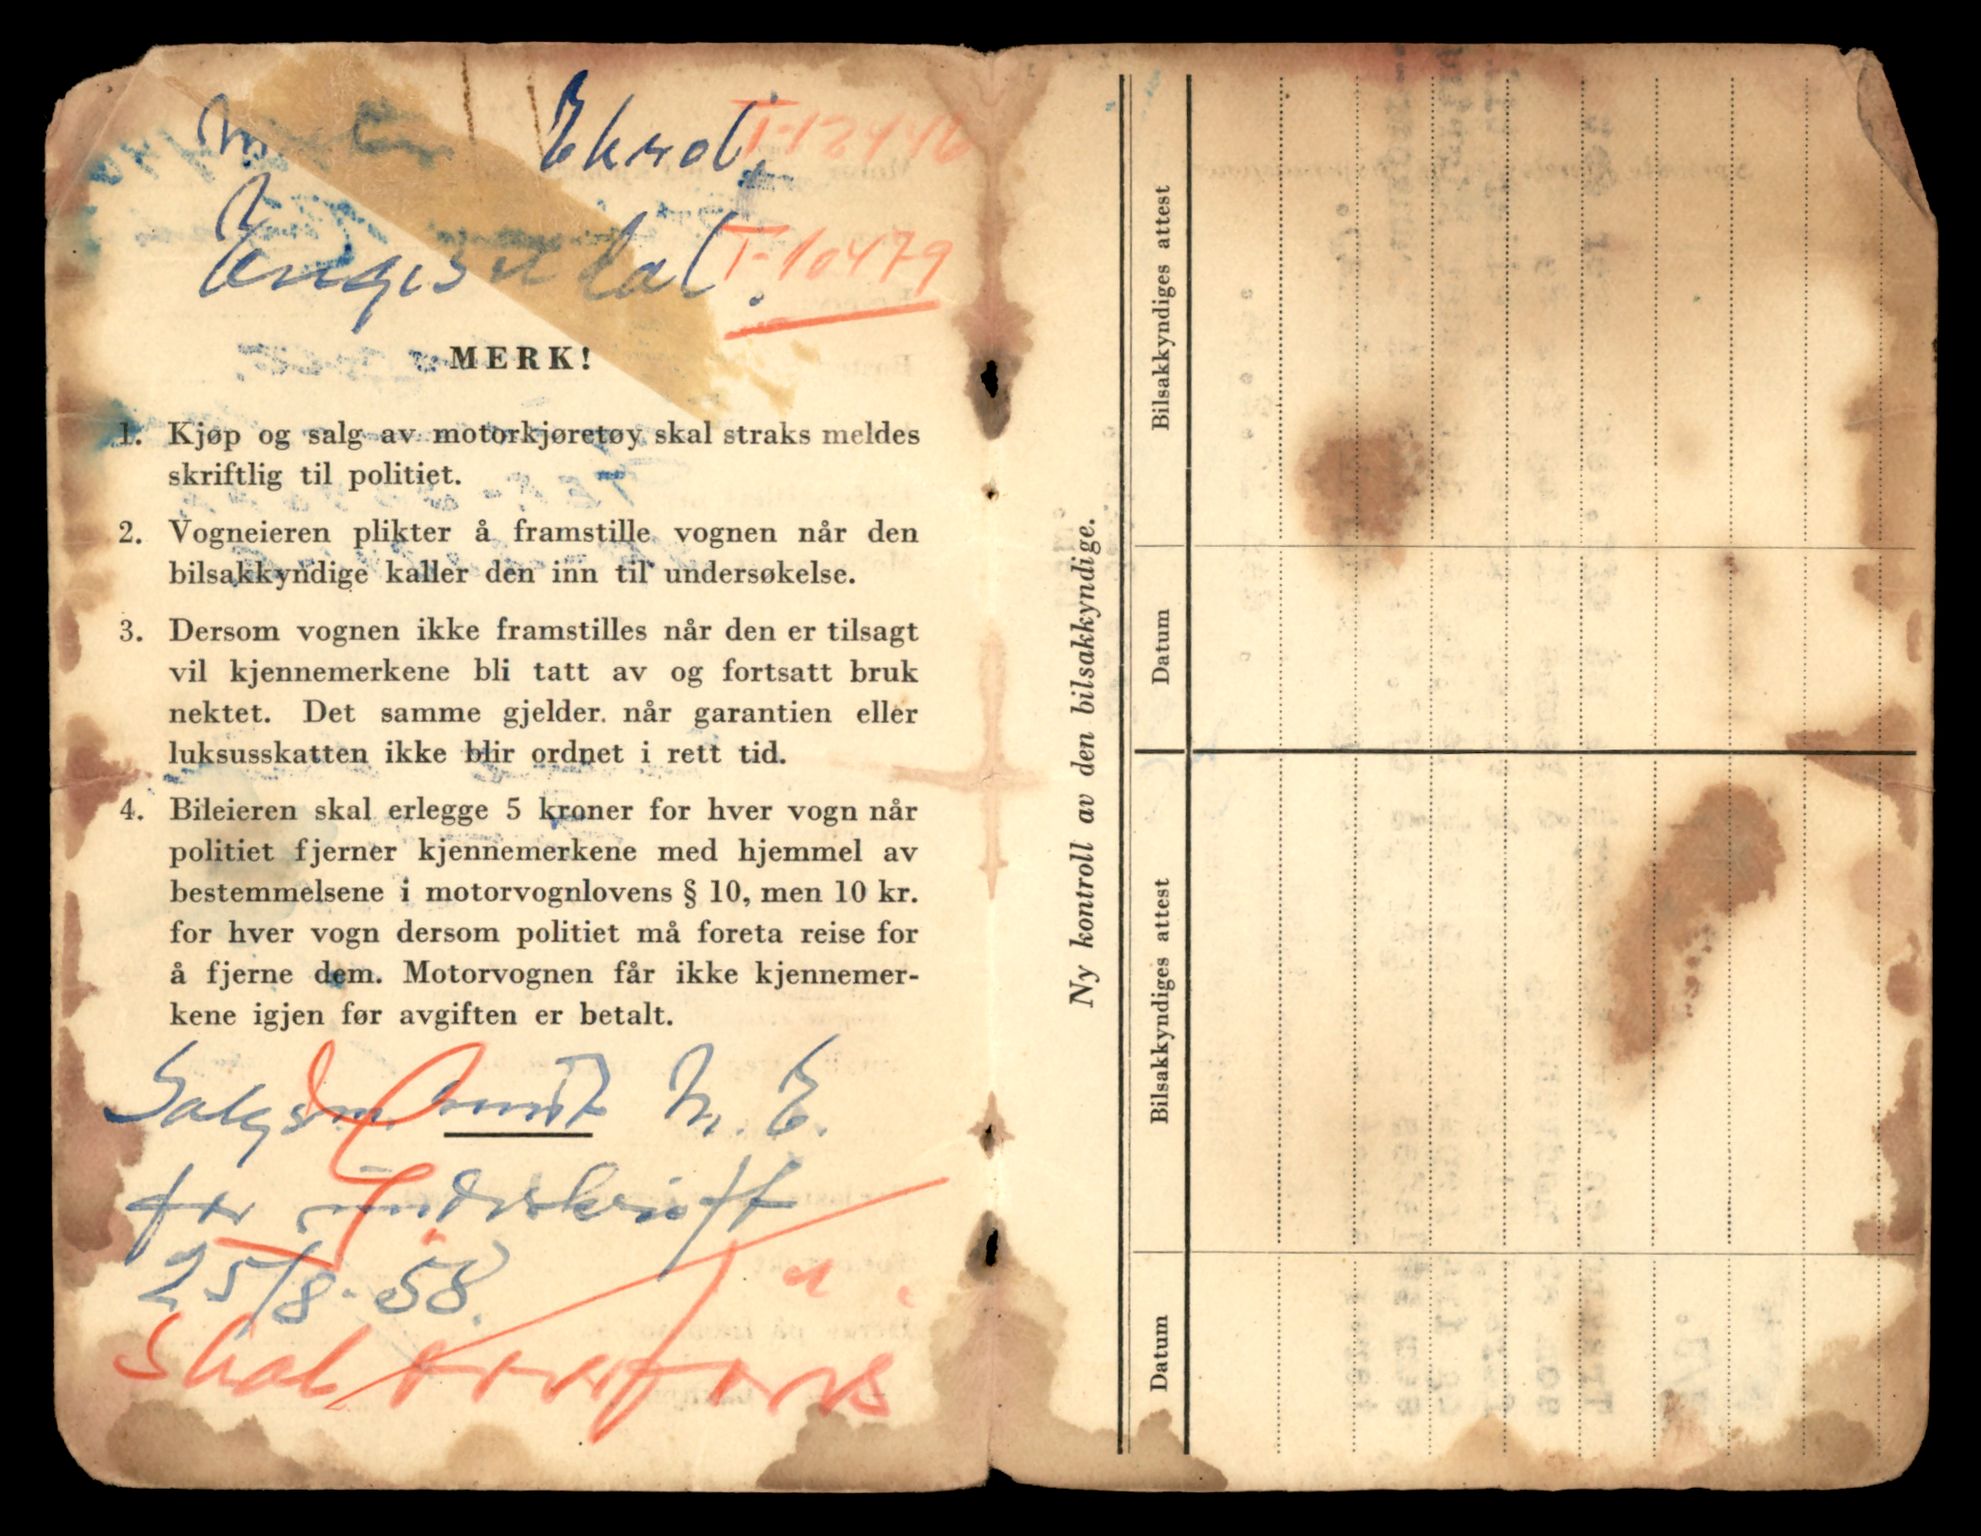 Ekrol,
T-12446
T-10479
MERK!
1. Kjøp og salg av motorkjøretøy skal straks meldes
skriftlig til politiet.
2. Vogneieren plikter å framstille vognen når den
bilsakkyndige kaller den inn til undersøkelse.
3. Dersom vognen ikke framstilles når den er tilsagt
vil kjennemerkene bli tatt av og fortsatt bruk
nektet. Det samme gjelder når garantien eller
luksusskatten ikke blir ordnet i rett tid.
4. Bileieren skal erlegge 5 kroner for hver vogn når
politiet fjerner kjennemerkene med hjemmel av
bestemmelsene i motorvognlovens § 10, men 10 kr.
for hver vogn dersom politiet må foreta reise for
å fjerne dem. Motorvognen får ikke kjennemer-
kene igjen før avgiften er betalt.
Salgsm. sendt M. E.
for underskrift
25/8-58.
Skal
Ny kontroll av den bilsakkyndige.
Datum
Bilsakkyndiges attest
Datum
Bilsakkyndiges attest